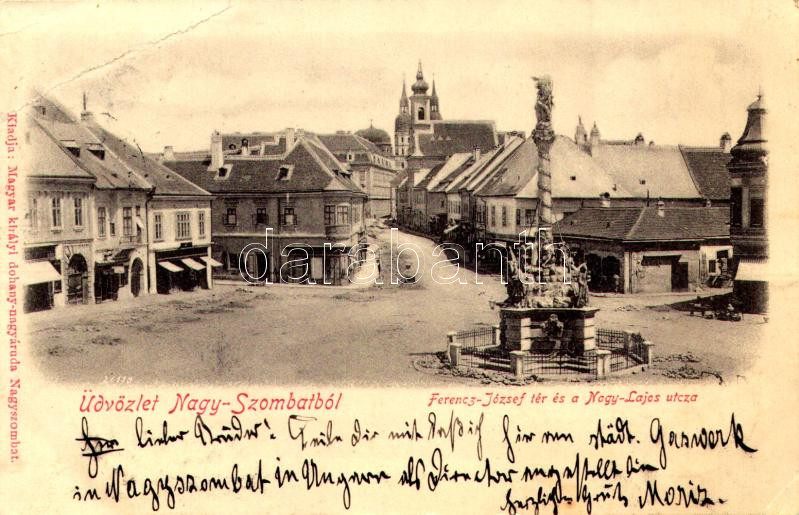 Kiadja: Magyar királyi dohány-nagyáruda Nagyszombat.
darabanth
Üdvözlet Nagy-Szombatból
Ferencz-József tér és a Nagy-Lajos utcza
lieber Bruder! Teile dir mit daß ich hier am städt. Gaswerk
in Nagyszombat in Ungarn als Director angestellt bin
herzlichen Gruß Moriz.